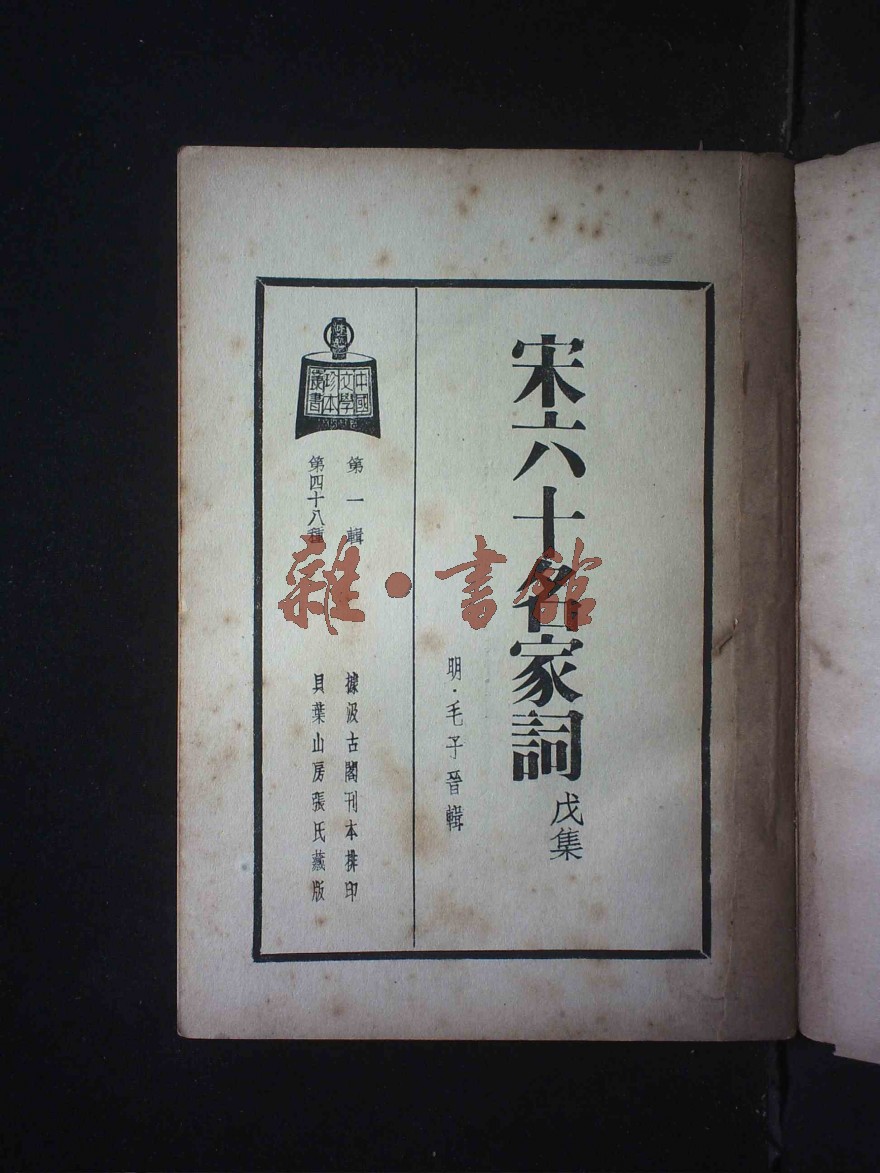 宋六十名家詞
戊集
明·毛子晉輯
中國
文學
珍本
叢書
第一輯
第四十八種
據汲古閣刊本排印
貝葉山房張氏藏版
雜·書館